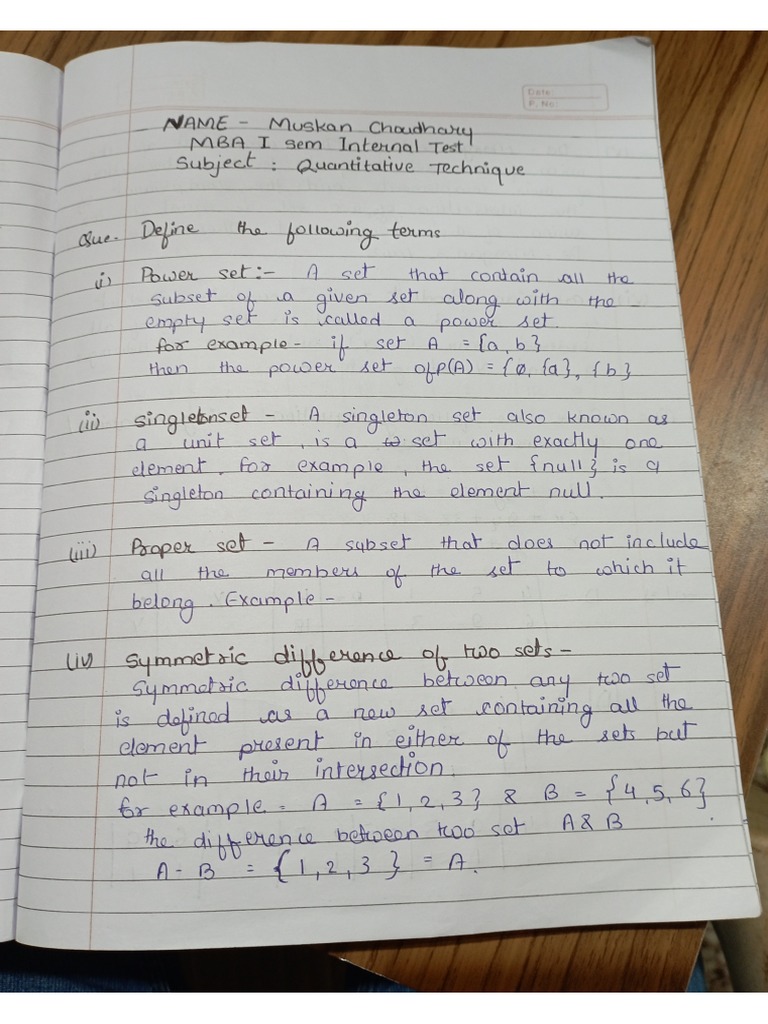 Date:
P. No:
NAME - Muskan Choudhary
MBA I Sem Internal Test
Subject : Quantitative Technique
Que. Define the following terms
i) Power set :- A set that contain all the
subset of a given set along with the
empty set is called a power set.
for example - if set A = {a, b}
then the power set of P(A) = {ø, {a}, {b}
(ii) singletonset - A singleton set also known as
a unit set, is a set with exactly one
element. for example, the set {null} is a
singleton containing the element null.
(iii) Proper set - A subset that does not include
all the members of the set to which it
belong. Example -
(iv) Symmetric difference of two sets -
Symmetric difference between any two set
is defined as a new set containing all the
element present in either of the sets but
not in their intersection.
for example - A = {1, 2, 3} & B = {4, 5, 6}.
the difference between two set A & B
A - B = {1, 2, 3} = A.